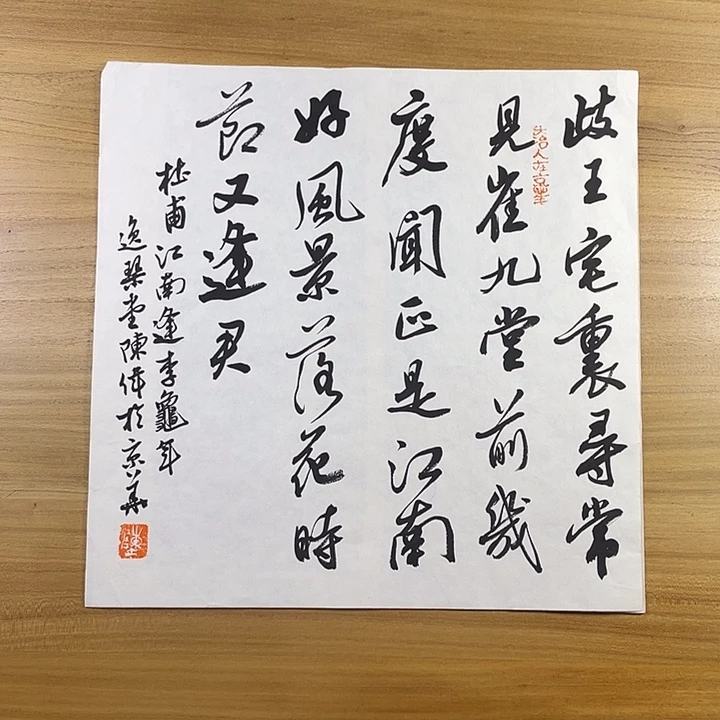 歧王宅裏尋常
見崔九堂前幾
度聞正是江南
好風景落花時
節又逢君
杜甫江南逢李龜年
逸琹堂陳偉於京華